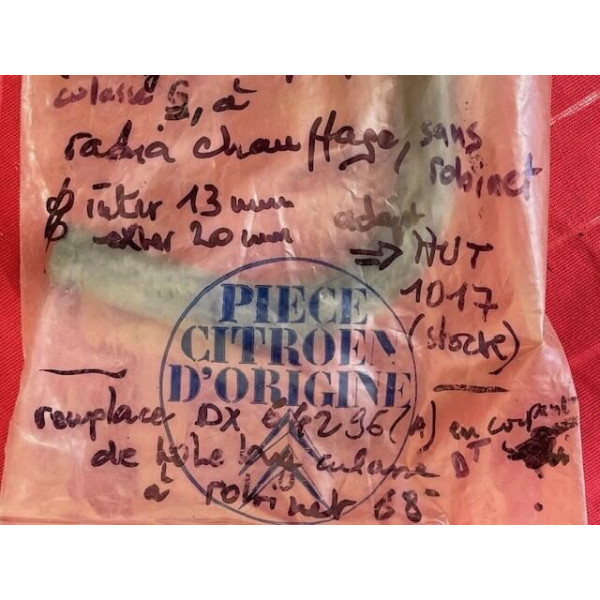 culasse G, à
radia chauffage, sans
robinet
ϕ inter 13 mm
ϕ exter 20 mm
adapt
⇒ HUT
1017
(stocke)
PIECE
CITROËN
D'ORIGINE
remplace DX 64296(A) en coupant
de culasse DT
à robinet 68-